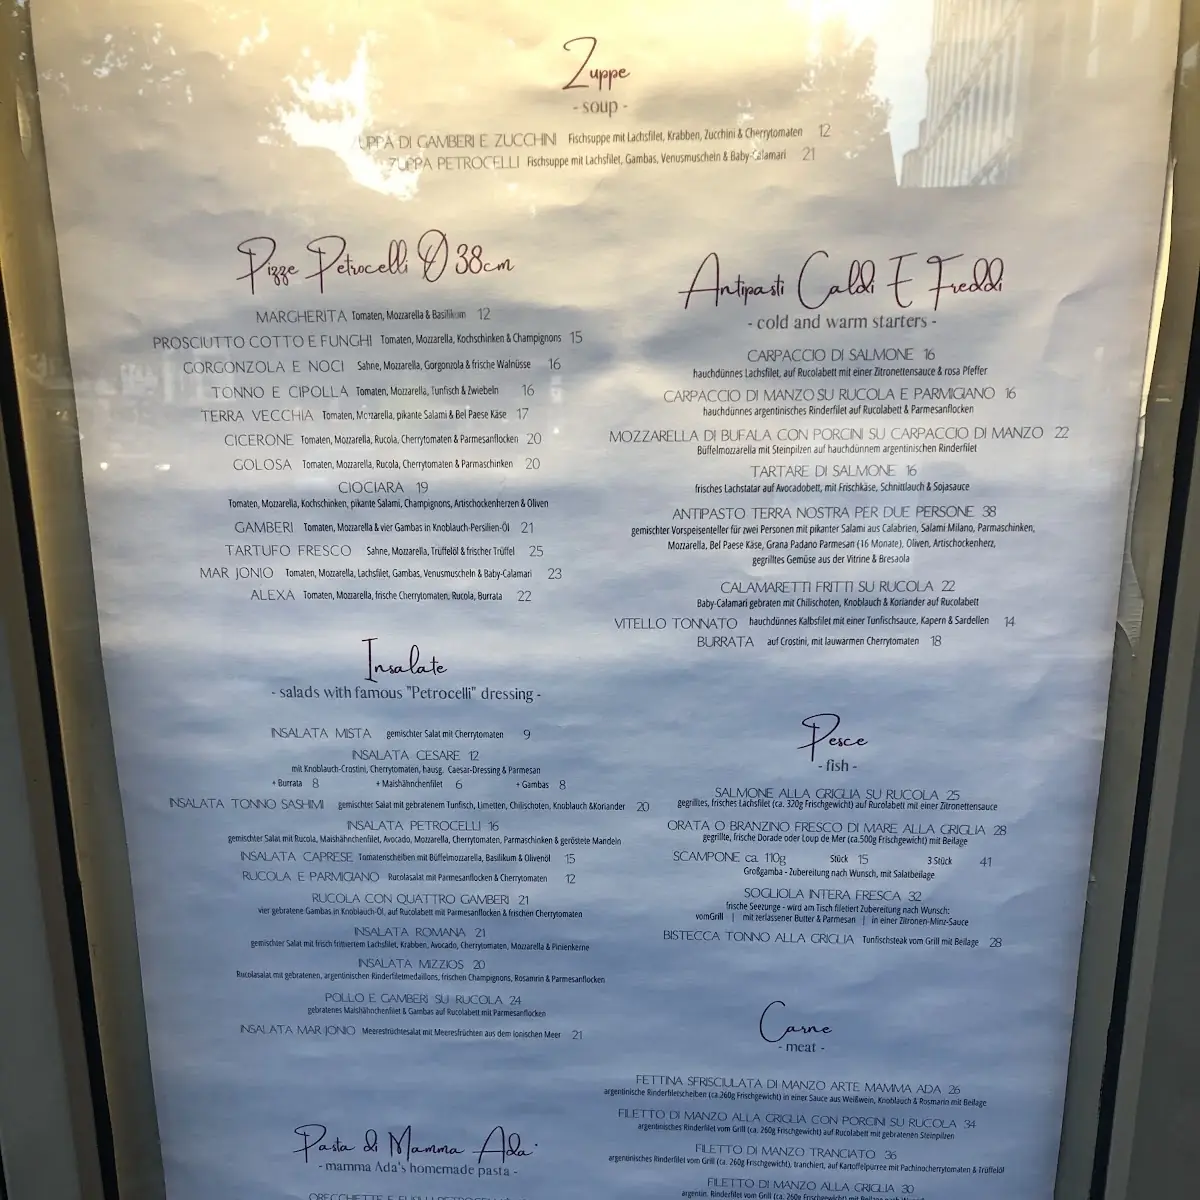 Zuppe
- soup -
UPPA DI GAMBERI E ZUCCHINI Fischsuppe mit Lachsfilet, Krabben, Zucchini & Cherrytomaten 12
ZUPPA PETROCELLI Fischsuppe mit Lachsfilet, Gambas, Venusmuscheln & Baby-Calamari 21
Pizze Petrocelli Ø 38cm
MARGHERITA Tomaten, Mozzarella & Basilikum 12
PROSCIUTTO COTTO E FUNGHI Tomaten, Mozzarella, Kochschinken & Champignons 15
GORGONZOLA E NOCI Sahne, Mozzarella, Gorgonzola & frische Walnüsse 16
TONNO E CIPOLLA Tomaten, Mozzarella, Tunfisch & Zwiebeln 16
TERRA VECCHIA Tomaten, Mozzarella, pikante Salami & Bel Paese Käse 17
CICERONE Tomaten, Mozzarella, Rucola, Cherrytomaten & Parmesanflocken 20
GOLOSA Tomaten, Mozzarella, Rucola, Cherrytomaten & Parmaschinken 20
CIOCIARA 19
Tomaten, Mozzarella, Kochschinken, pikante Salami, Champignons, Artischockenherzen & Oliven
GAMBERI Tomaten, Mozzarella & vier Gambas in Knoblauch-Persilien-Öl 21
TARTUFO FRESCO Sahne, Mozzarella, Trüffelöl & frischer Trüffel 25
MAR JONIO Tomaten, Mozzarella, Lachsfilet, Gambas, Venusmuscheln & Baby-Calamari 23
ALEXA Tomaten, Mozzarella, frische Cherrytomaten, Rucola, Burrata 22
Insalate
- salads with famous "Petrocelli" dressing -
INSALATA MISTA gemischter Salat mit Cherrytomaten 9
INSALATA CESARE 12
mit Knoblauch-Crostini, Cherrytomaten, hausg. Caesar-Dressing & Parmesan
+ Burrata 8 + Maishähnchenfilet 6 + Gambas 8
INSALATA TONNO SASHIMI gemischter Salat mit gebratenem Tunfisch, Limetten, Chilischoten, Knoblauch &Koriander 20
INSALATA PETROCELLI 16
gemischter Salat mit Rucola, Maishähnchenfilet, Avocado, Mozzarella, Cherrytomaten, Parmaschinken & geröstete Mandeln
INSALATA CAPRESE Tomatenscheiben mit Büffelmozzarella, Basilikum & Olivenöl 15
RUCOLA E PARMIGIANO Rucolasalat mit Parmesanflocken & Cherrytomaten 12
RUCOLA CON QUATTRO GAMBERI 21
vier gebratene Gambas in Knoblauch-Öl, auf Rucolabett mit Parmesanflocken & frischen Cherrytomaten
INSALATA ROMANA 21
gemischter Salat mit frisch frittiertem Lachsfilet, Krabben, Avocado, Cherrytomaten, Mozzarella & Pinienkerne
INSALATA MIZZIOS 20
Rucolasalat mit gebratenen, argentinischen Rinderfiletmedaillons, frischen Champignons, Rosamrin & Parmesanflocken
POLLO E GAMBERI SU RUCOLA 24
gebratenes Maishähnchenfilet & Gambas auf Rucolabett mit Parmesanflocken
INSALATA MAR JONIO Meeresfrüchtesalat mit Meeresfrüchten aus dem ionischen Meer 21
Pasta di Mamma Ada
- mamma Ada's homemade pasta -
Antipasti Caldi E Freddi
- cold and warm starters -
CARPACCIO DI SALMONE 16
hauchdünnes Lachsfilet, auf Rucolabett mit einer Zitronettensauce & rosa Pfeffer
CARPACCIO DI MANZO SU RUCOLA E PARMIGIANO 16
hauchdünnes argentinisches Rinderfilet auf Rucolabett & Parmesanflocken
MOZZARELLA DI BUFALA CON PORCINI SU CARPACCIO DI MANZO 22
Büffelmozzarella mit Steinpilzen auf hauchdünnem argentinischen Rinderfilet
TARTARE DI SALMONE 16
frisches Lachstatar auf Avocadobett, mit Frischkäse, Schnittlauch & Sojasauce
ANTIPASTO TERRA NOSTRA PER DUE PERSONE 38
gemischter Vorspeisenteller für zwei Personen mit pikanter Salami aus Calabrien, Salami Milano, Parmaschinken,
Mozzarella, Bel Paese Käse, Grana Padano Parmesan (16 Monate), Oliven, Artischockenherz,
gegrilltes Gemüse aus der Vitrine & Bresaola
CALAMARETTI FRITTI SU RUCOLA 22
Baby-Calamari gebraten mit Chilischoten, Knoblauch & Koriander auf Rucolabett
VITELLO TONNATO hauchdünnes Kalbsfilet mit einer Tunfischsauce, Kapern & Sardellen 14
BURRATA auf Crostini, mit lauwarmen Cherrytomaten 18
Pesce
- fish -
SALMONE ALLA GRIGLIA SU RUCOLA 25
gegrilltes, frisches Lachsfilet (ca. 320g Frischgewicht) auf Rucolabett mit einer Zitronettensauce
ORATA O BRANZINO FRESCO DI MARE ALLA GRIGLIA 28
gegrillte, frische Dorade oder Loup de Mer (ca.500g Frischgewicht) mit Beilage
SCAMPONE ca. 110g Stück 15 3 Stück 41
Großgamba - Zubereitung nach Wunsch, mit Salatbeilage
SOGLIOLA INTERA FRESCA 32
frische Seezunge - wird am Tisch filetiert Zubereitung nach Wunsch:
vomGrill | mit zerlassener Butter & Parmesan | in einer Zitronen-Minz-Sauce
BISTECCA TONNO ALLA GRIGLIA Tunfischsteak vom Grill mit Beilage 28
Carne
- meat -
FETTINA SFRISCIULATA DI MANZO ARTE MAMMA ADA 26
argentinische Rinderfiletscheiben (ca.260g Frischgewicht) in einer Sauce aus Weißwein, Knoblauch & Rosmarin mit Beilage
FILETTO DI MANZO ALLA GRIGLIA CON PORCINI SU RUCOLA 34
argentinisches Rinderfilet vom Grill (ca. 260g Frischgewicht) auf Rucolabett mit gebratenen Steinpilzen
FILETTO DI MANZO TRANCIATO 36
argentinisches Rinderfilet vom Grill (ca. 260g Frischgewicht), tranchiert, auf Kartoffelpurree mit Pachinocherrytomaten & Trüffelöl
FILETTO DI MANZO ALLA GRIGLIA 30